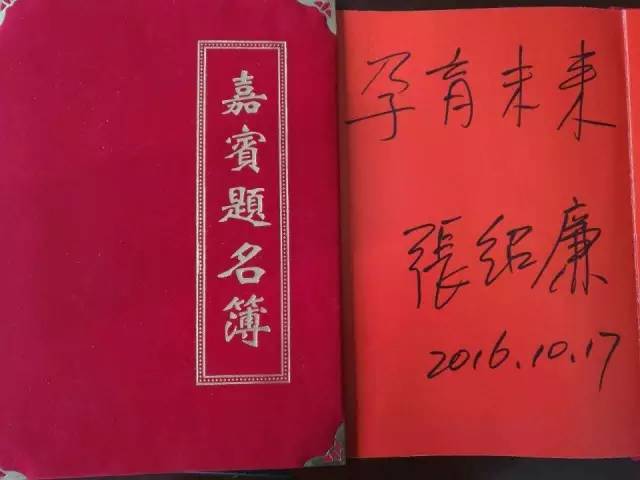 嘉賓題名簿
孕育未来
張绍廉
2016.10.17